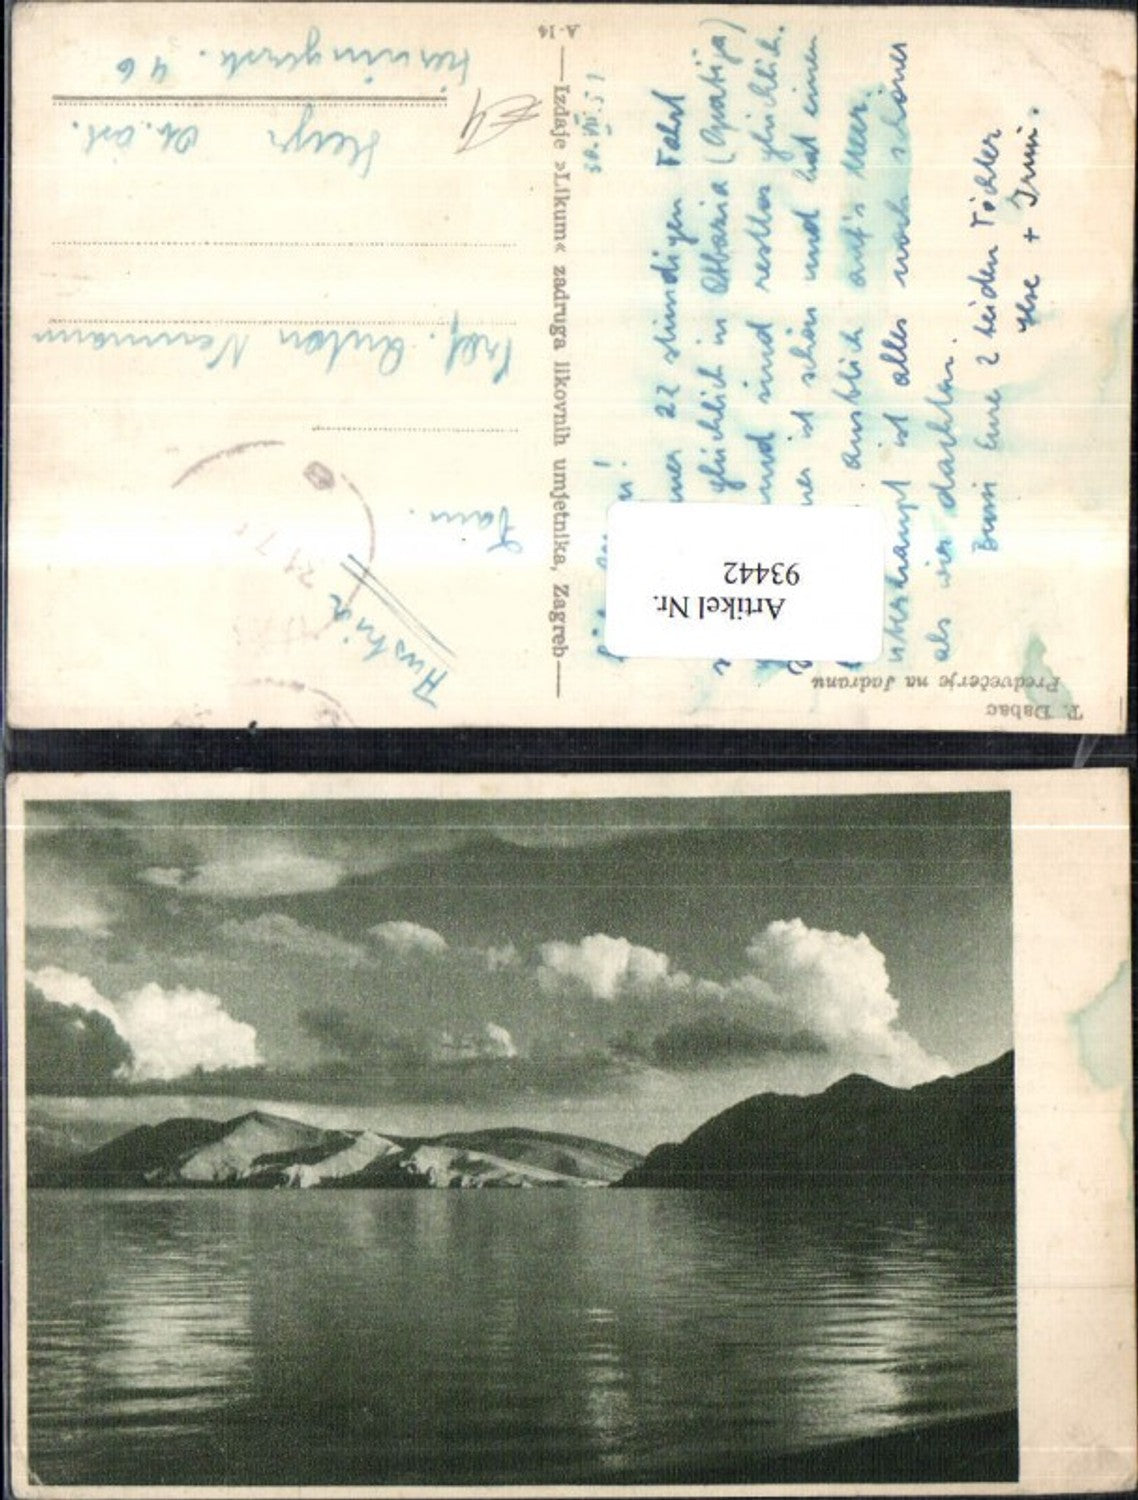 T. Dabac
Predvečerje na Jadranu
Izdaje »Likum« zadruga likovnih umjetnika, Zagreb
A-14
50.VII.51
22 stündigen Fahrt
glücklich in Abbazia (Opatija)
und sind restlos glücklich.
ist schön und hat einen
Ausblick auf's Meer.
Überhaupt ist alles noch schöner
als wir dachten.
Bussi Eure 2 beiden Töchter
Ilse + Irmi.
Artikel Nr.
93442
Austria
Fam.
Prof. Anton Neumann
Steyr Ob.öst.
46